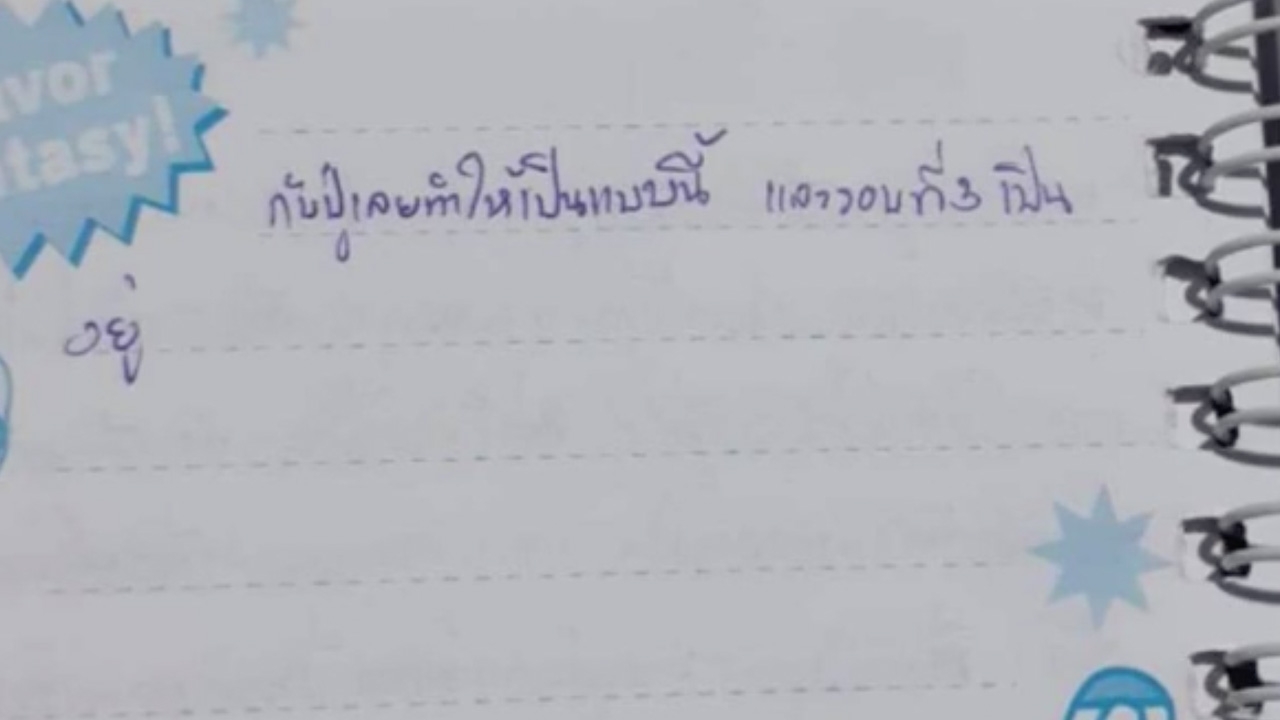 avor
tasy!
กับปู่เลยทำให้เป็นแบบนี้ และรอบที่3 เป็น
อยู่